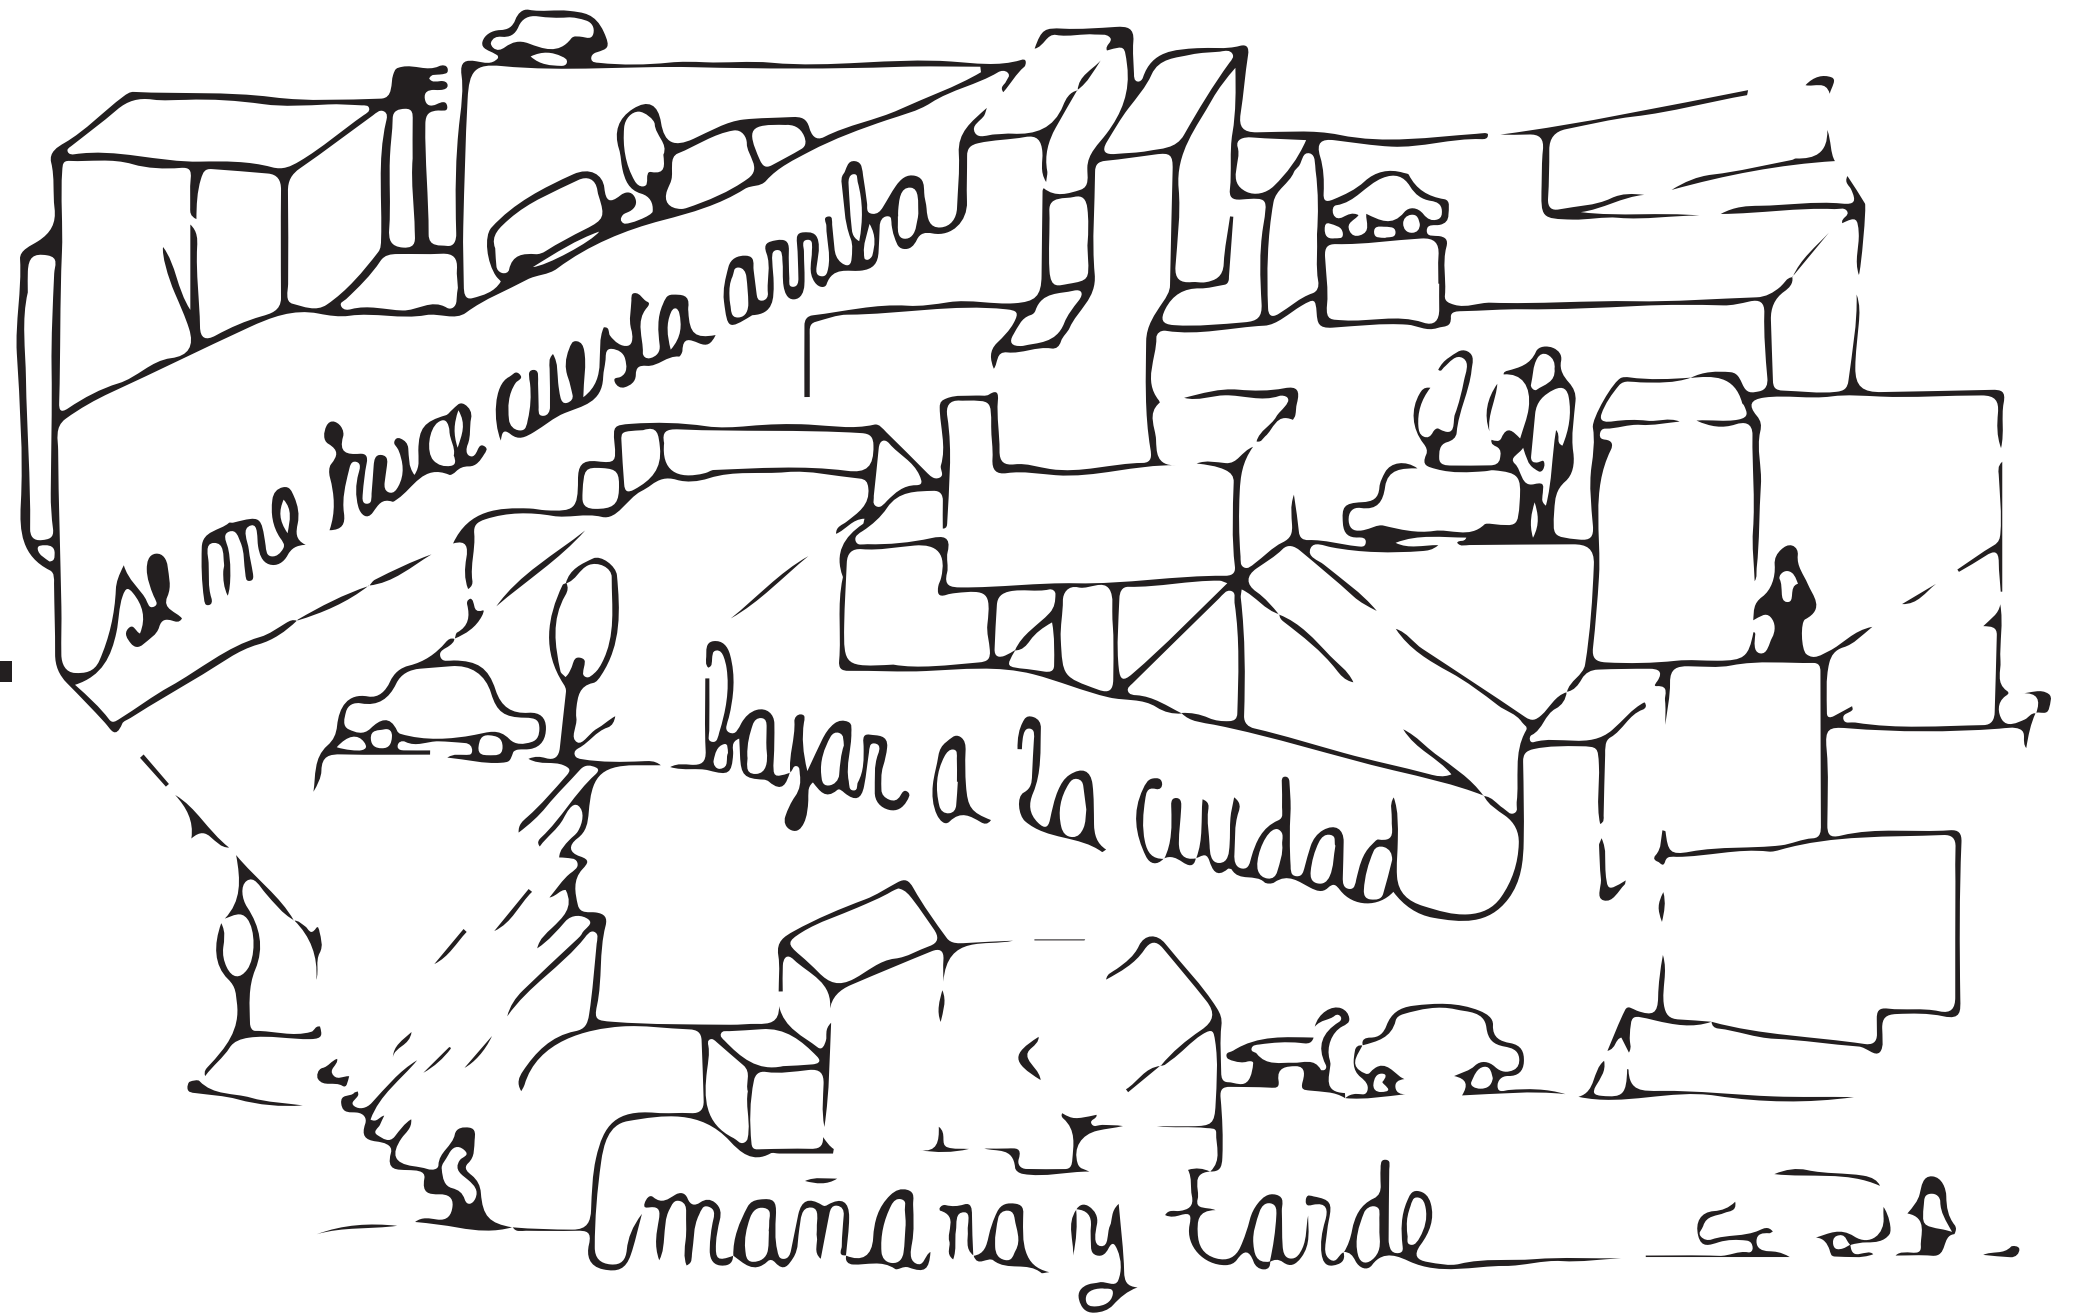 se me hace cuesta arriba
bajar a la ciudad
mañana y tarde